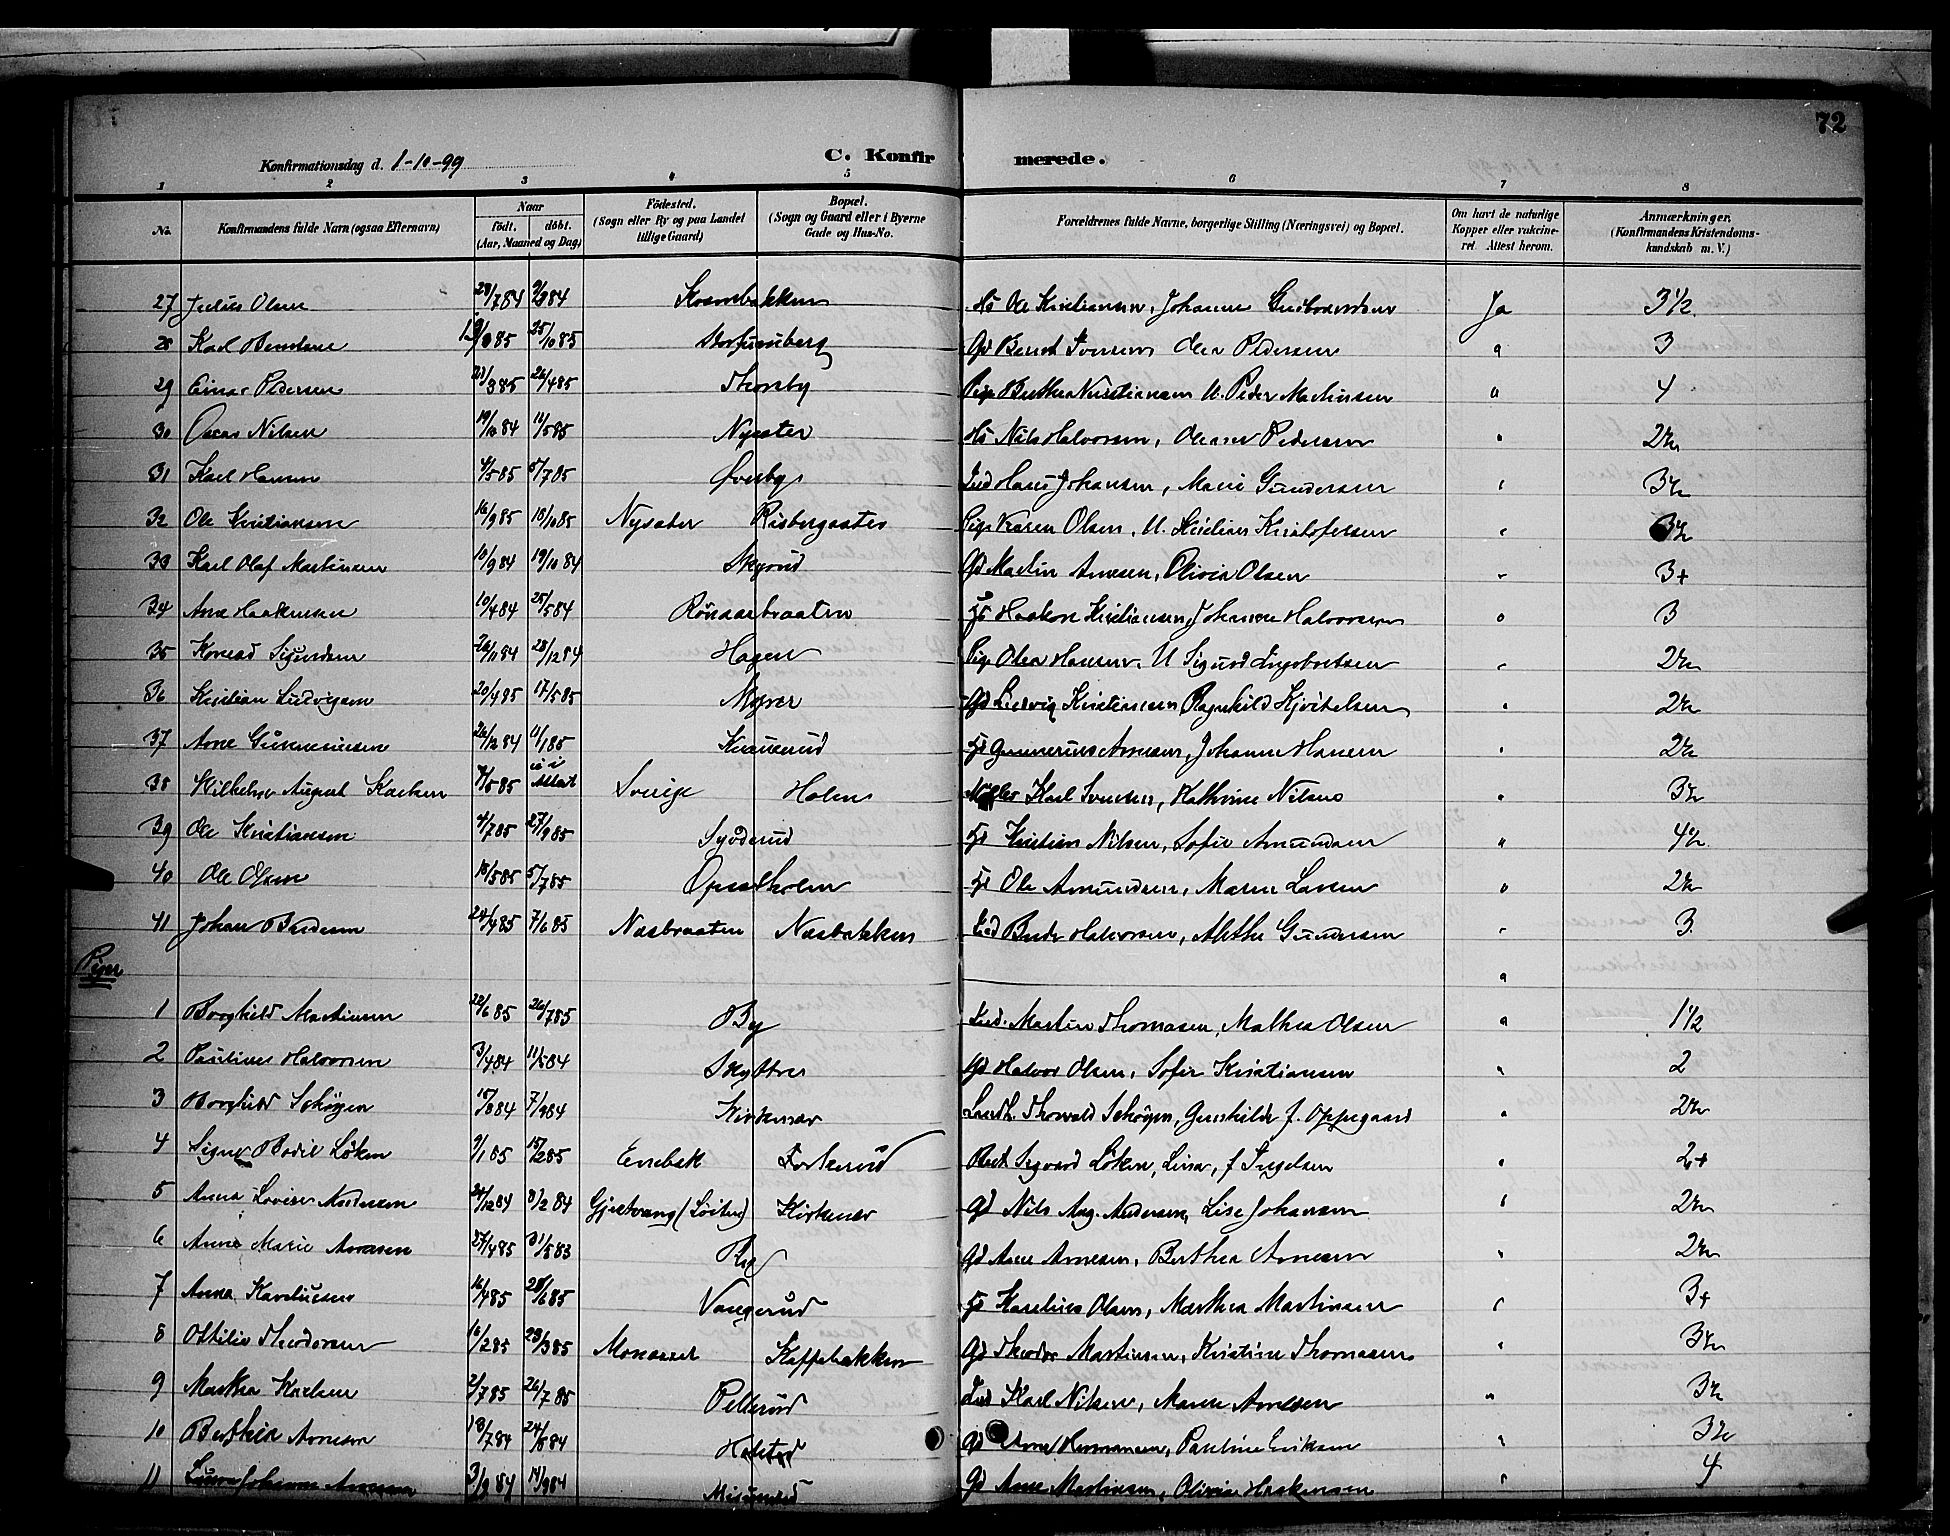 72
Konfirmationsdag d. 1-10-99
C. Konfirmerede.
1 2 3 4 5 6 7 8
No. Konfirmandens fulde Navn (ogsaa Efternavn) Naar födt. döbt. (Aar, Maaned og Dag) Födested. (Sogn eller By og paa Landet tillige Gaard) Bopæl. (Sogn og Gaard eller i Byerne Gade og Hus-No. Forældrenes fulde Navne, borgerlige Stilling (Næringsvei) og Bopæl. Om havt de naturlige Kopper eller vakcineret. Attest herom. Anmærkninger. (Konfirmandens Kristendomskundskab m. V.)
27 Julius Olsen 28/7 84 Hs Ole Kristiansen, Johanne Gudbrandsen Ja 3 1/2
28 Karl Bendsen 25/10 85 Gd Bernt Iversen Olea Pedersen " 3
29 Einar Pedersen 26/4 85 Thorsby Pige Berthea Kristiansen U. Peder Martinsen " 4
30 Oscar Nilsen 19/10 84 Nysæter Hs Nils Halvorsen, Pedersen " 2 1/2
31 Karl Hansen 4/5 85 5/7 85 Øverby Ind Hans Johansen, Marie Gundersen " 3 1/2
32 Ole Kristiansen 16/9 85 18/10 85 Nysæter Risbergsæter Pige Karen Olsen, U. Kristian Kristofersen " 3 1/2
33 Karl Olaf Martinsen 10/9 84 19/10 84 Skyrud Gd Martin Arnesen, Olivia Olsen " 3+
34 Arne Haakensen 10/4 84 25/5 84 Rönaasbraaten Fs Haakon Kristiansen, Johanne Halvorsen " 3
35 Konrad Sigurdsen 26/11 84 28/12 84 Hagen Pige Olea Hansen, U Sigurd Engebretsen " 2 1/2
36 Kristian Ludvigsen 20/4 85 17/5 85 Myrer Gd Ludvig Kristiansen Ragnhild Kjöstelsen " 2 1/2
37 Arne Gunneriusen 26/12 84 11/1 85 Knauserud Fs Gunnerius Arnesen, Johanne Hansen " 2 1/2
38 Vilhelm August Karlsen 7/5 85 Attest Sverige Holen Møller Karl Svensen, Kathrine Nilsen " 3 1/2
39 Ole Kristiansen 4/7 85 27/9 85 Syöderud Fs Kristian Nilsen, Sofie Amundsen " 4 1/2
40 Ole Olsen 18/5 85 5/7 85 Opsetholen Fs Ole Amundsen, Maren Larsen " 2 1/2
41 Johan Bardesen 24/4 85 7/6 85 Næsbraaten Næsbakken Ind Halvorsen, Alethe Gundersen " 3
Piger "
1 Borghild Martinsen 22/6 85 26/7 85 By Ind. Martin Thomasen, Mathea Olsen " 1 1/2
2 Pauline Halvorsen 3/4 84 11/5 84 Skyttra Gd Halvor Olsen, Sofie Kristiansen " 2
3 Borghild Schöyen 15/8 84 7/9 84 Kirkenær Landh. Thorvald Schöyen, Gunhilde f. Oppegaard " 2 1/2
4 Signe Bodil Löken 9/1 85 15/2 85 Enebak Forkerud Sigvard Löken, Lina, f Ingelsen " 2+
5 Anna Lovise Andersen 84 Gjætvang (Löiten) Kirkenær Gd Nils Aug. Andersen, Lise Johansen " 2 1/2
6 Anne Marie Arnesen 27/4 85 31/5 85 By Gd Arne Arnesen, Berthea Arnesen " 2 1/2
7 Anna Kareliusen 16/4 85 28/6 85 Vangerud Fs Karelius Olsen, Marthea Martinsen " 3+
8 Ottilie Theodorsen 16/2 85 29/3 85 Monsæt Kaffebakken Gd Theodor Martinsen, Kristine Thomasen " 3 1/2
9 Marthea Karlsen 2/7 85 26/7 85 Pellerud Ind Karl Nilsen, Maren Arnesen " 3 1/2
10 Berthea Arnesen 13/7 84 24/8 84 Holstad Gd Arne Hermansen, Pauline Eriksen " 3 1/2
11 Johanne Arnesen 3/9 84 14/9 84 Gd Arne Martinsen, Olivia Haakensen " 4